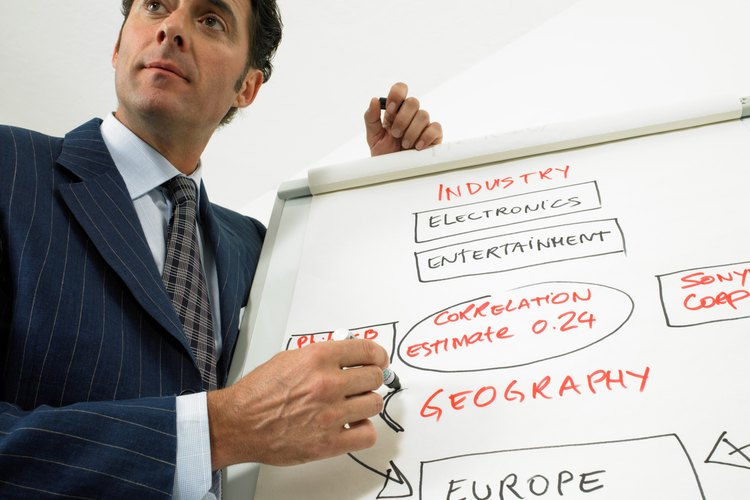 INDUSTRY
ELECTRONICS
ENTERTAINMENT
SONY
CORP
CORRELATION
ESTIMATE 0.24
GEOGRAPHY
EUROPE